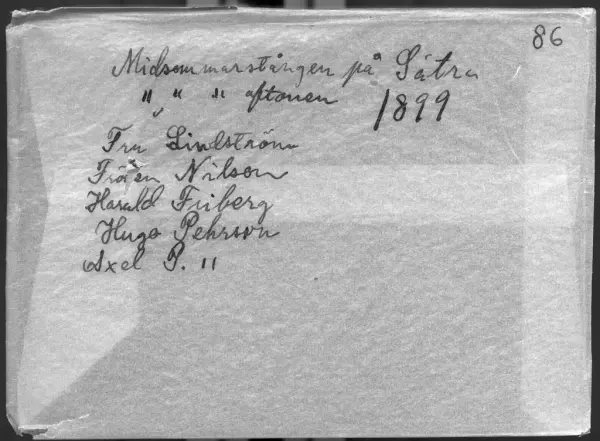 86
Midsommarstången på Sätra
" " " aftonen 1899
Fru Lindström
Fröken Nilson
Harald Friberg
Hugo Pehrson
Axel P. "